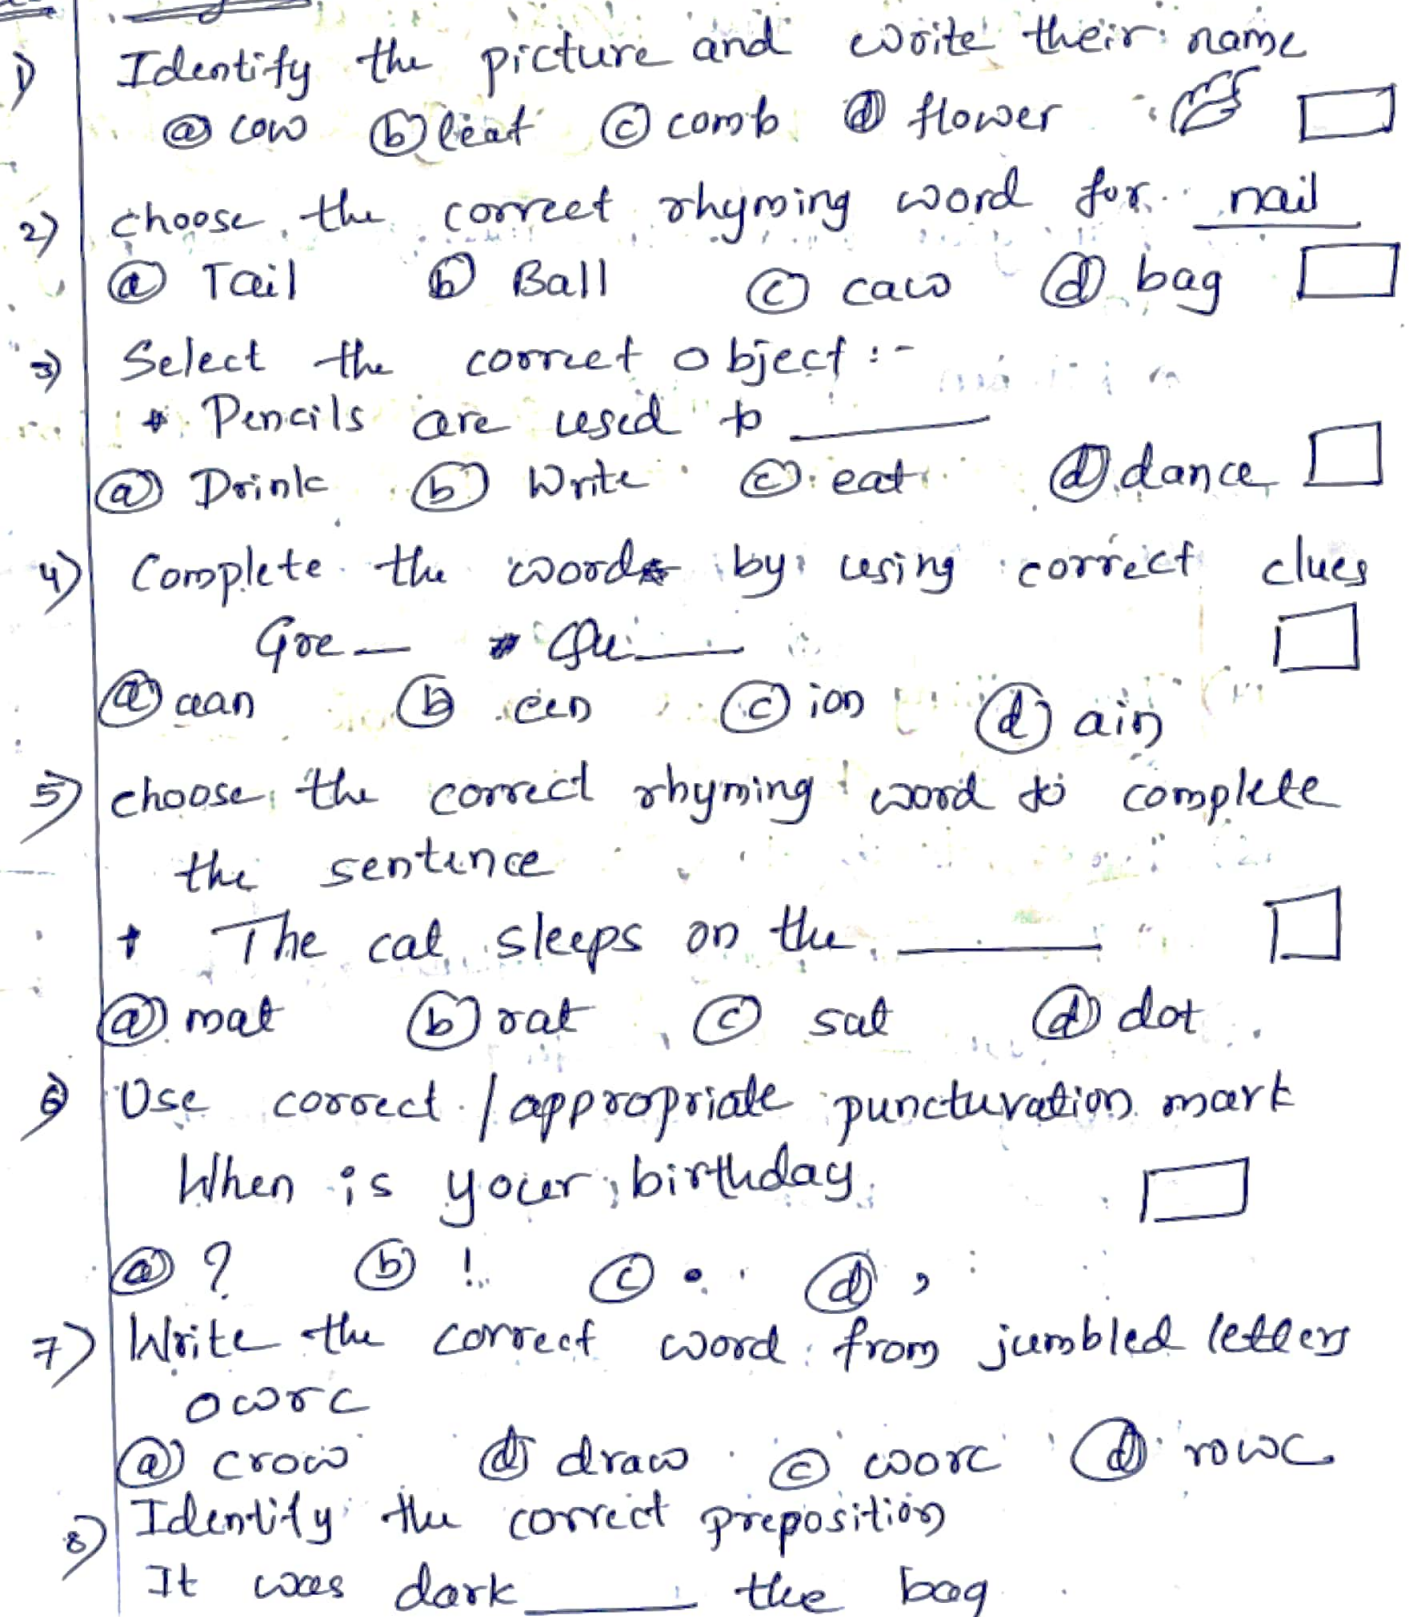 1) Identify the picture and write their name
ⓐ cow ⓑ leaf ⓒ comb ⓓ flower
2) choose the correct rhyming word for nail
ⓐ Tail ⓑ Ball ⓒ caw ⓓ bag
3) Select the correct object :-
* Pencils are used to ____
ⓐ Drink ⓑ Write ⓒ eat ⓓ dance
4) Complete the words by using correct clues
Gre __ * Qu ____
ⓐ aan ⓑ een ⓒ ion ⓓ ain
5) choose the correct rhyming word to complete
the sentence
+ The cat sleeps on the ____
ⓐ mat ⓑ rat ⓒ sat ⓓ dot
6) Use correct / appropriate puncturation mark
When is your birthday
ⓐ ? ⓑ ! ⓒ . ⓓ ,
7) Write the correct word from jumbled letters
owrc
ⓐ crow ⓓ draw ⓒ worc ⓓ rowc
8) Identify the correct preposition
It was dark ____ the bag